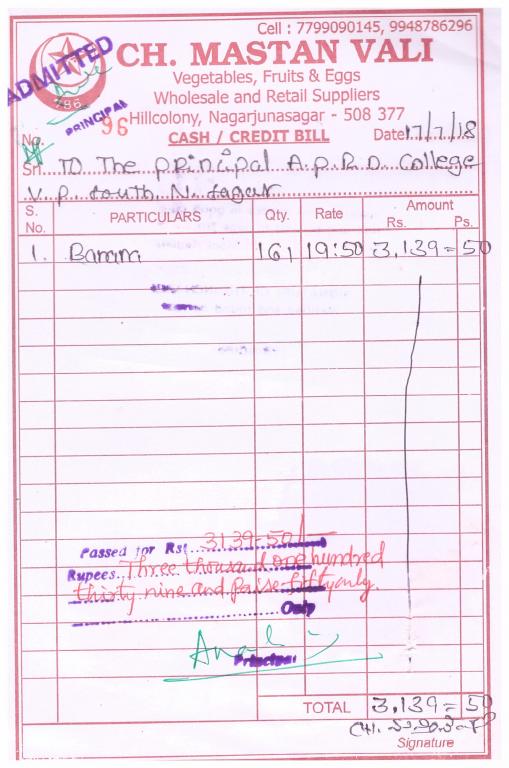 Cell : 7799090145, 9948786296
ADMITTED
CH. MASTAN VALI
786
Vegetables, Fruits & Eggs
Wholesale and Retail Suppliers
PRINCIPAL
Hillcolony, Nagarjunasagar - 508 377
No. 96 CASH / CREDIT BILL Date 17/7/18
Sri TO The principal A.P.R.D. College
V.P. South N. Sagar
S. No. PARTICULARS Qty. Rate Amount Rs. Ps.
1. Banana 161 19:50 3,139=50
Passed for Rs. 3139-50/-
Rupees Three thousand one hundred
thirty nine and paise fifty only
Only
Principal
TOTAL 3,139=50
Signature